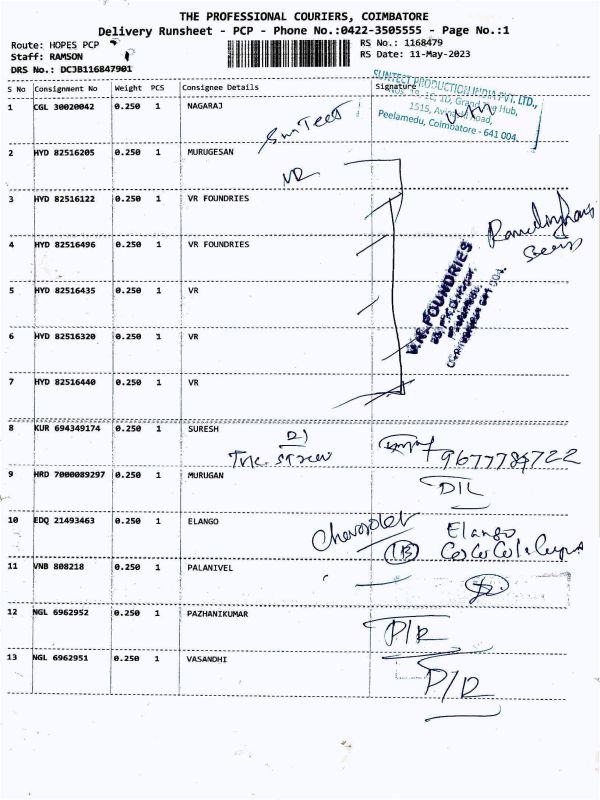 THE PROFESSIONAL COURIERS, COIMBATORE
Delivery Runsheet - PCP - Phone No.:0422-3505555 - Page No.:1
Route: HOPES PCP RS No.: 1168479
Staff: RAMSON RS Date: 11-May-2023
DRS No.: DCJB116847901
S No Consignment No Weight PCS Consignee Details Signature
SUNTECT PRODUCTION INDIA PVT. LTD.,
1515, Road,
Peelamedu, Coimbatore - 641 004.
1 CGL 30020042 0.250 1 NAGARAJ
SunTect
2 HYD 82516205 0.250 1 MURUGESAN
VR
3 HYD 82516122 0.250 1 VR FOUNDRIES
4 HYD 82516496 0.250 1 VR FOUNDRIES
V.R. FOUNDRIES
5 HYD 82516435 0.250 1 VR
6 HYD 82516320 0.250 1 VR
7 HYD 82516440 0.250 1 VR
8 KUR 694349174 0.250 1 SURESH
9677784722
9 HRD 7000089297 0.250 1 MURUGAN
D/L
10 EDQ 21493463 0.250 1 ELANGO
Chevrolet
Elango
11 VNB 808218 0.250 1 PALANIVEL
12 NGL 6962952 0.250 1 PAZHANIKUMAR
P/R
13 NGL 6962951 0.250 1 VASANDHI
P/R